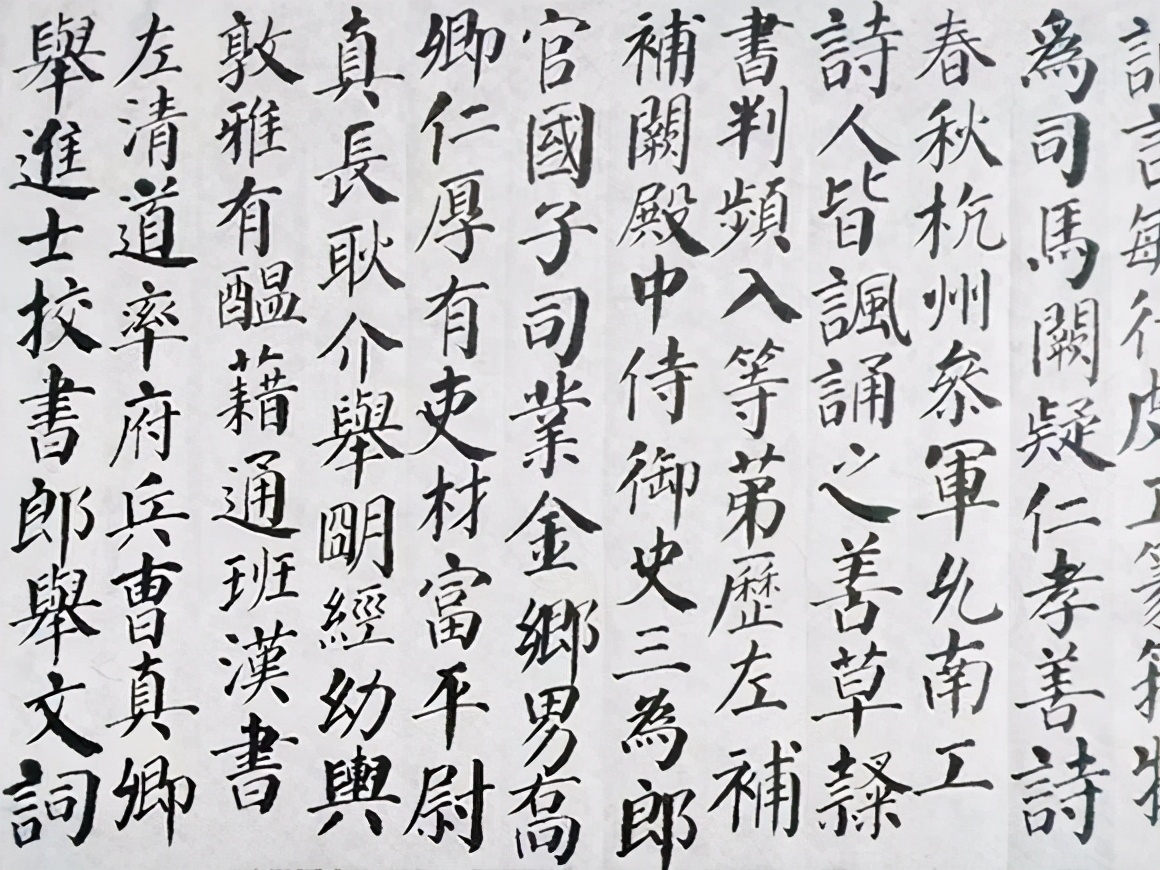 爲司馬闕疑仁孝善詩
春秋杭州參軍允南工
詩人皆諷誦之善草隸
書判頻入等第歷左補
補闕殿中侍御史三為郎
官國子司業金鄉男喬
卿仁厚有吏材富平尉
真長耿介舉朙經幼輿
敦雅有醞藉通班漢書
左清道率府兵曹真卿
舉進士校書郎舉文詞